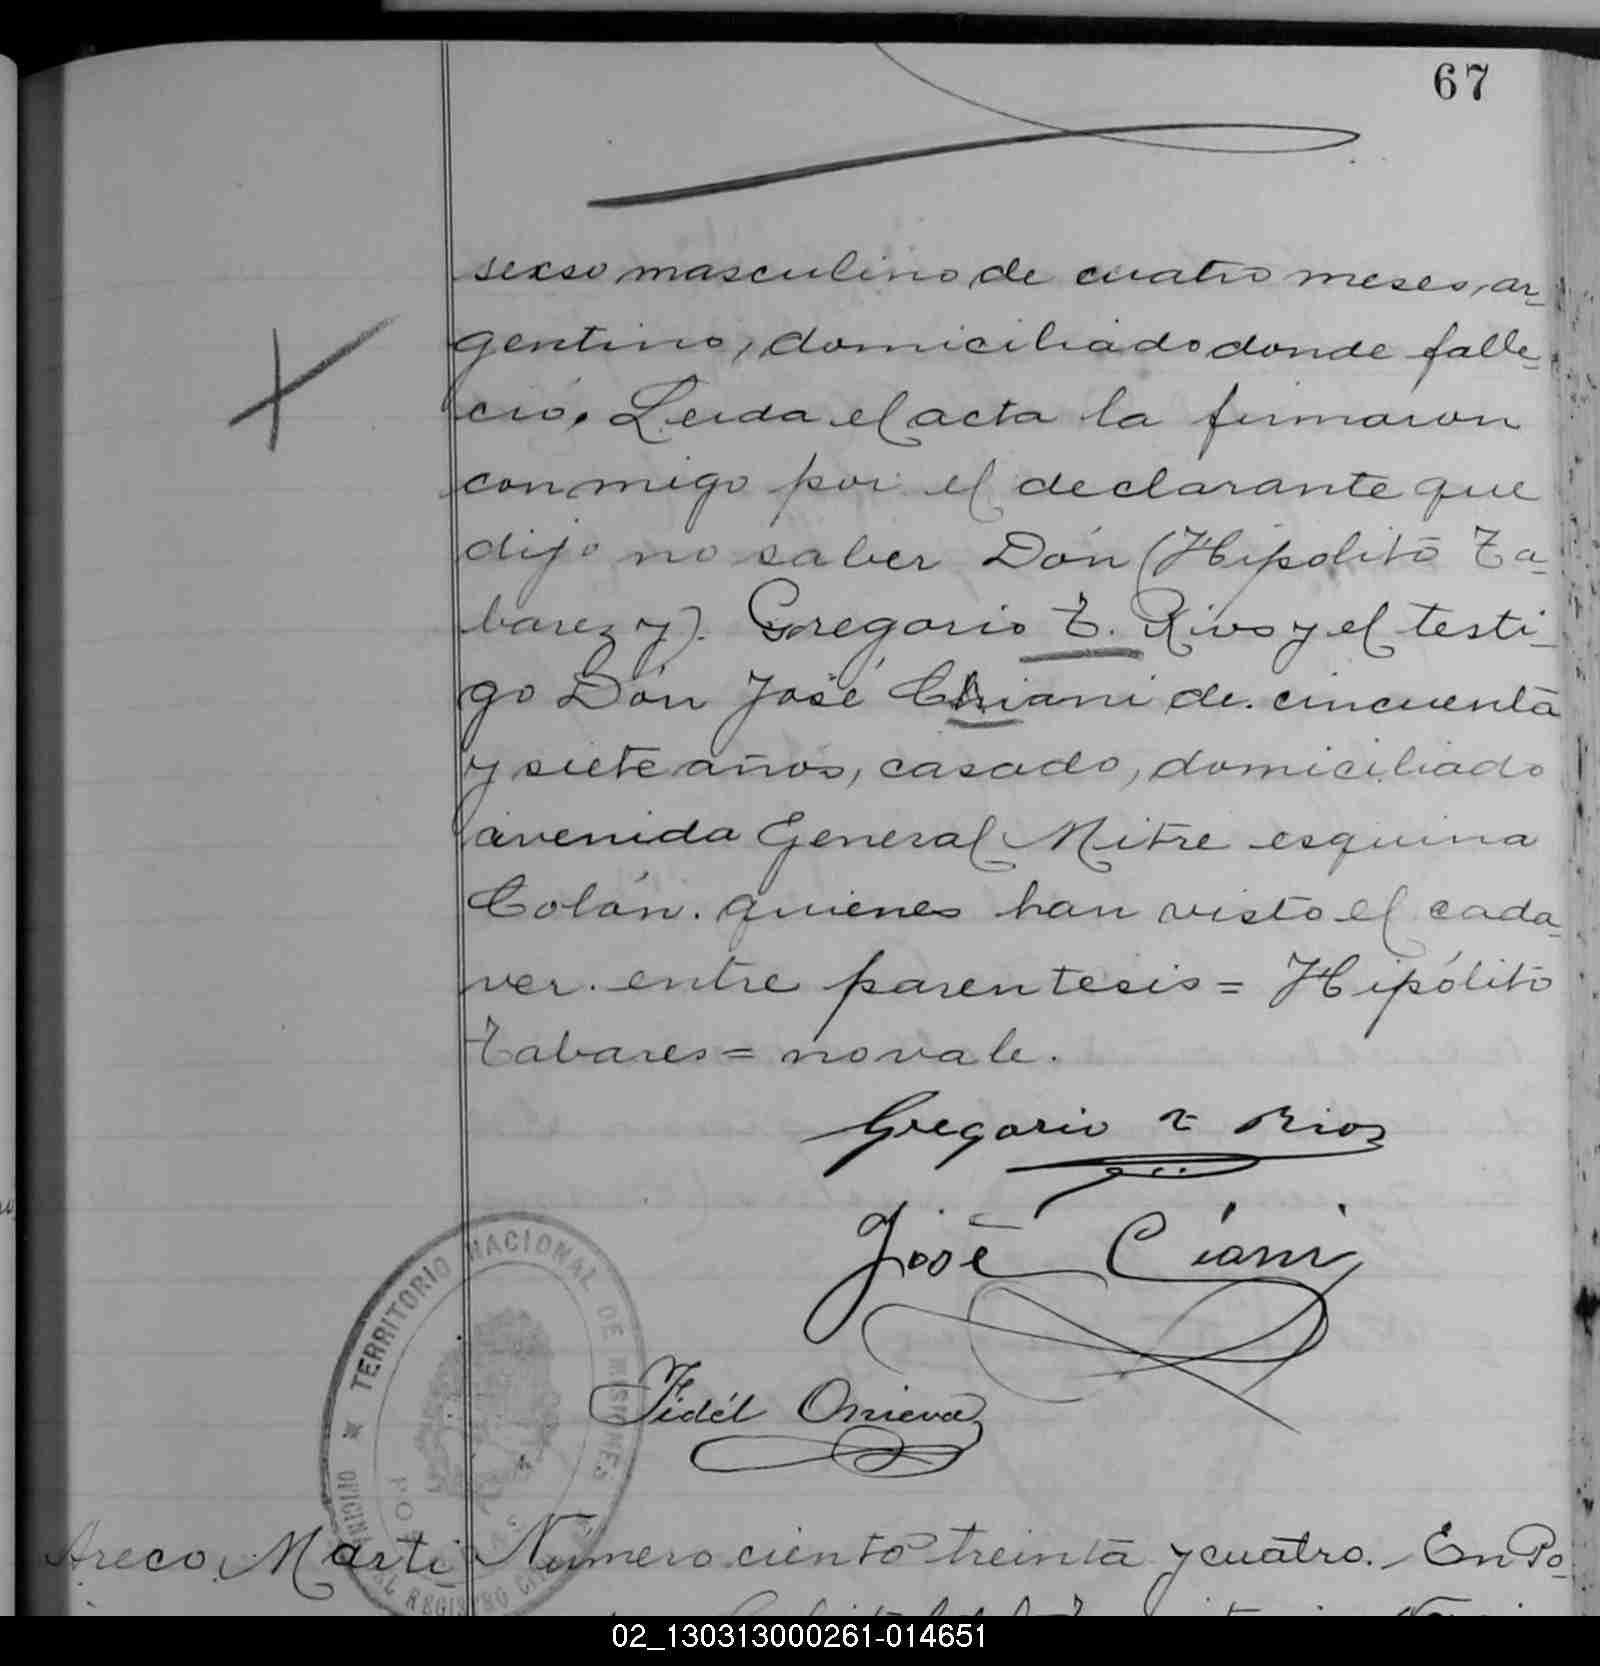 67
sexso masculino de cuatro meses, ar-
gentino, domiciliado donde falle-
ció. Leida el acta la firmaron
conmigo por el declarante que
dijo no saber Dón (Hipolito Ta-
barez y). Gregorio T. Rios y el testi-
go Dón José Ciani de cincuenta
y siete años, casado, domiciliado
avenida General Mitre esquina
Colón. quienes han visto el cada-
ver. entre parentesis = Hipólito
Tabares = no vale.
Gregorio T Rios
José Ciani
Fidél
TERRITORIO NACIONAL DE MISIONES
OFICINA DEL REGISTRO CIVIL
Areco, Marti- Numero ciento treinta y cuatro. En Po-
02_130313000261-014651